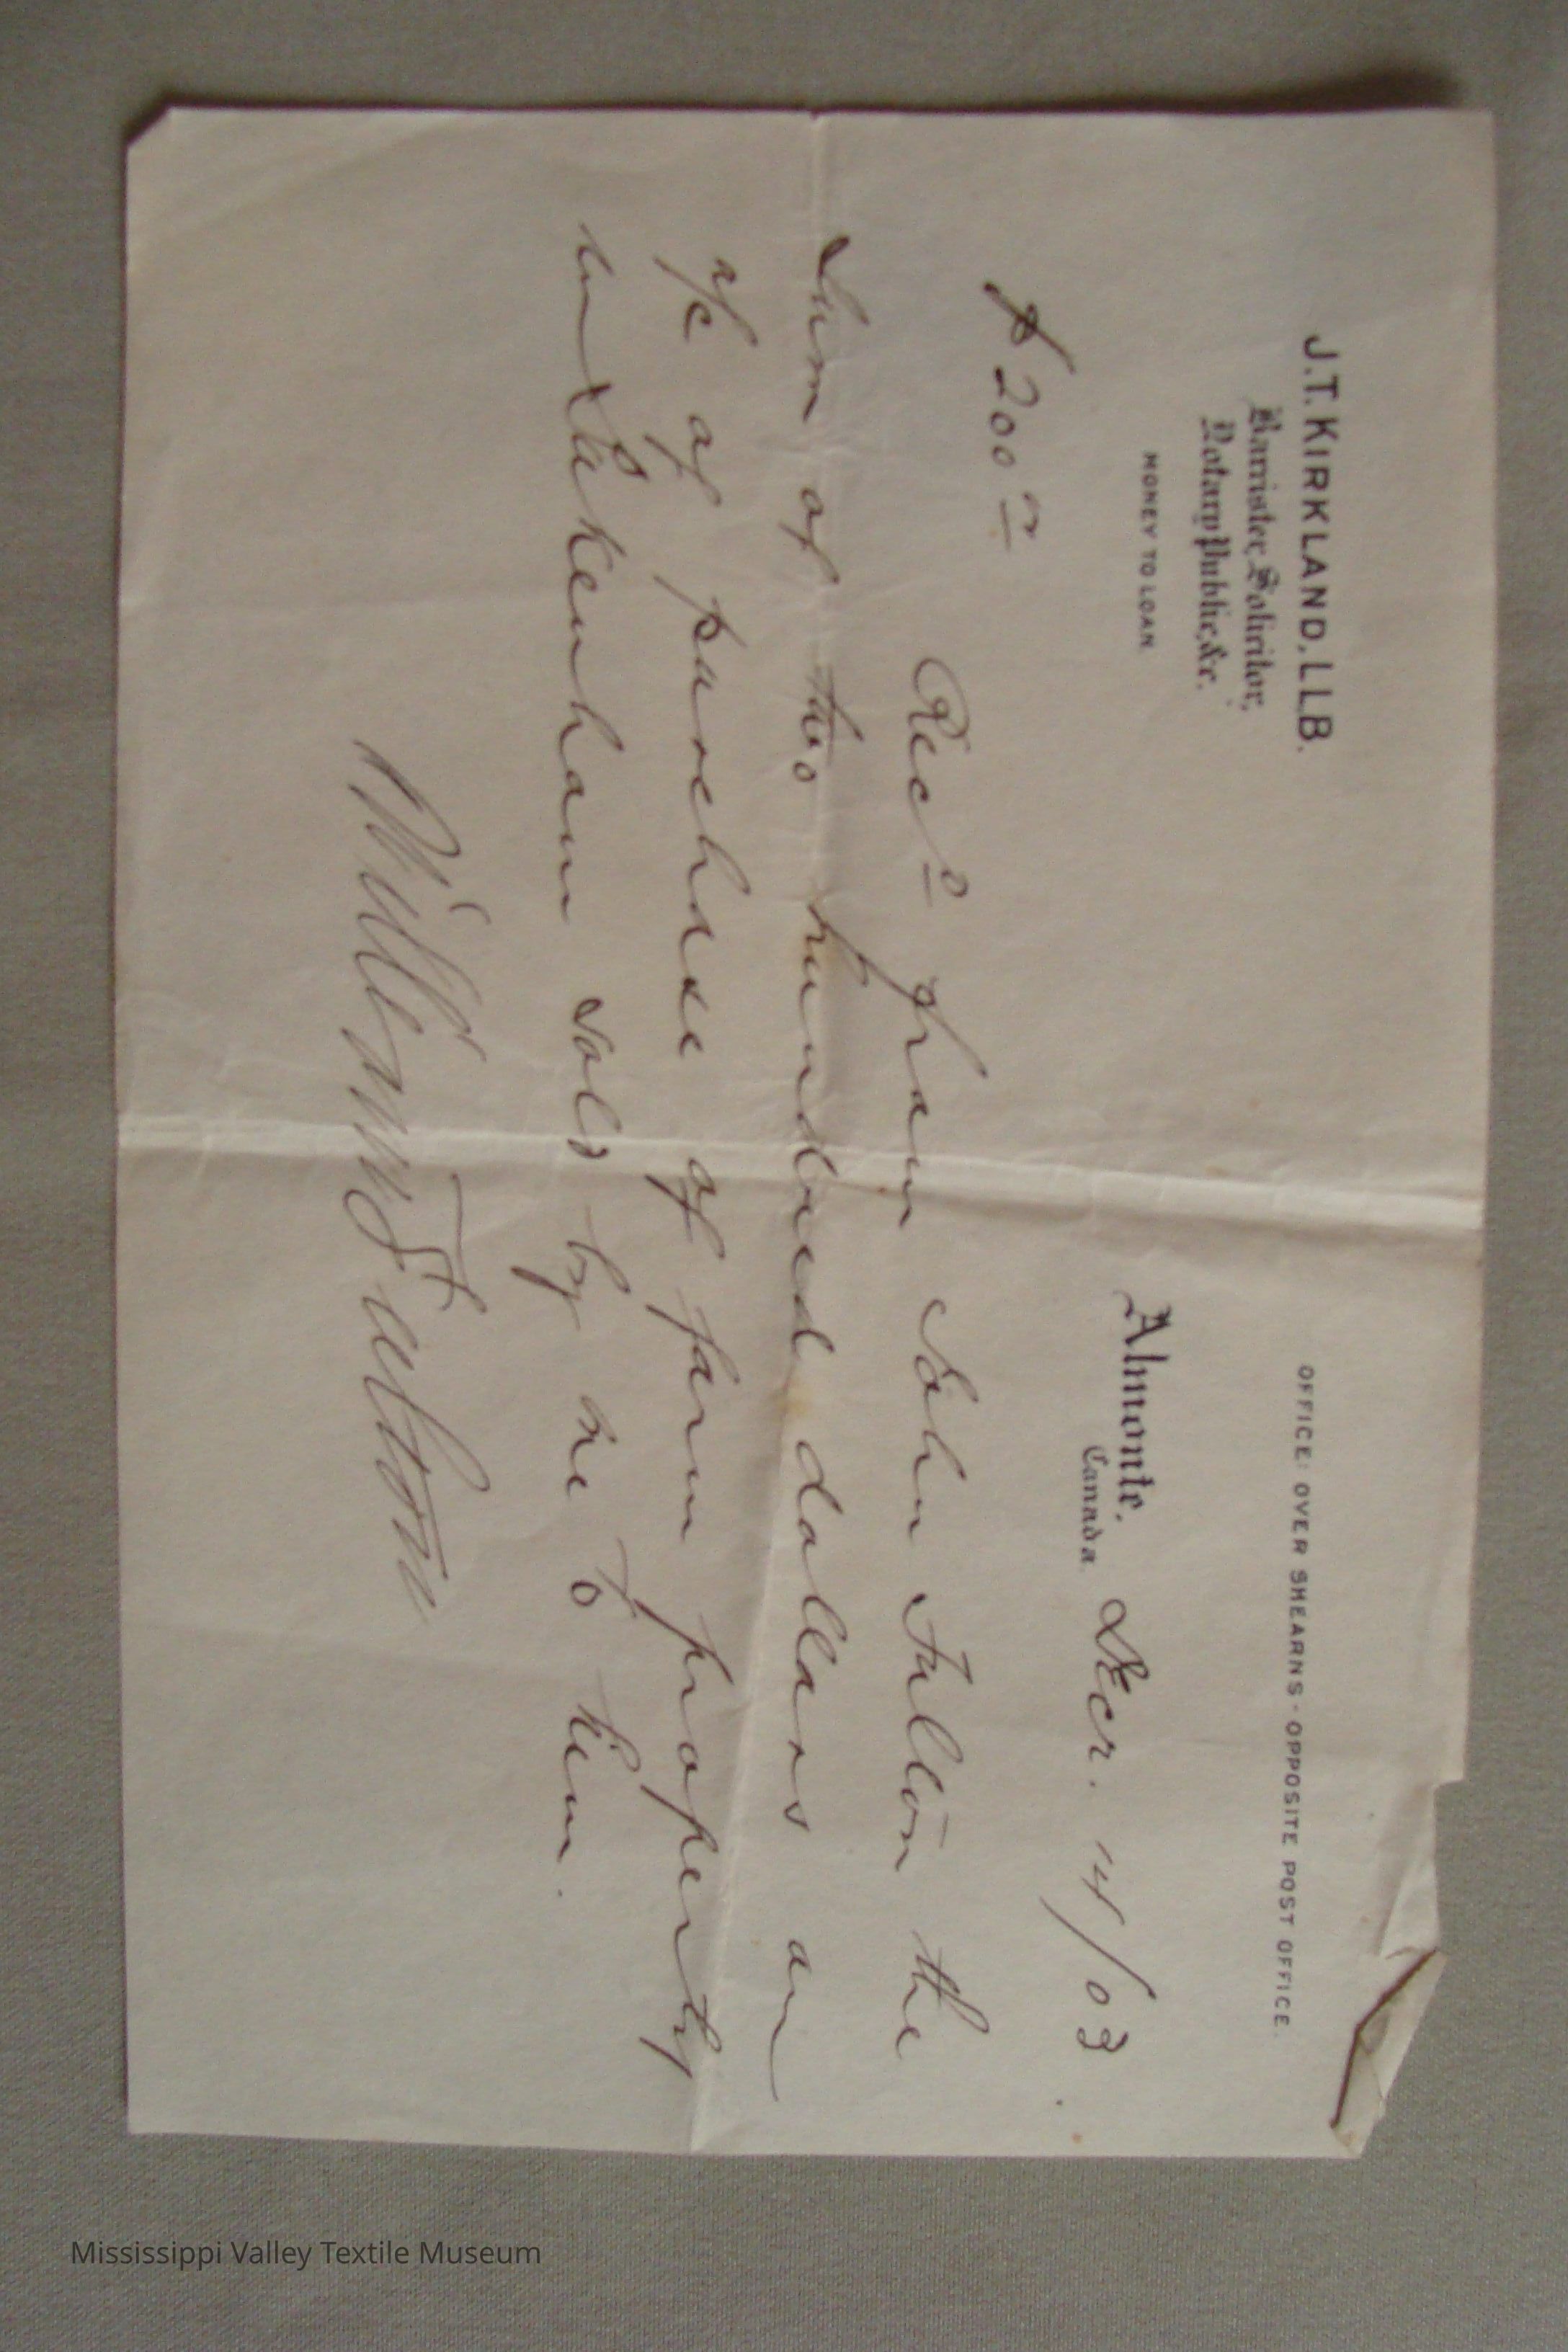 J.T. KIRKLAND, LLB.
Barrister, Solicitor,
Notary Public, &c.
MONEY TO LOAN
OFFICE: OVER SHEARNS - OPPOSITE POST OFFICE.
Almonte, Decr. 14/03
Canada
$200 00
Recd from John Fulton the
sum of two hundred dollars on
a/c of purchase of farm property
in Pakenham sold by me to him.
William Fulton
Mississippi Valley Textile Museum